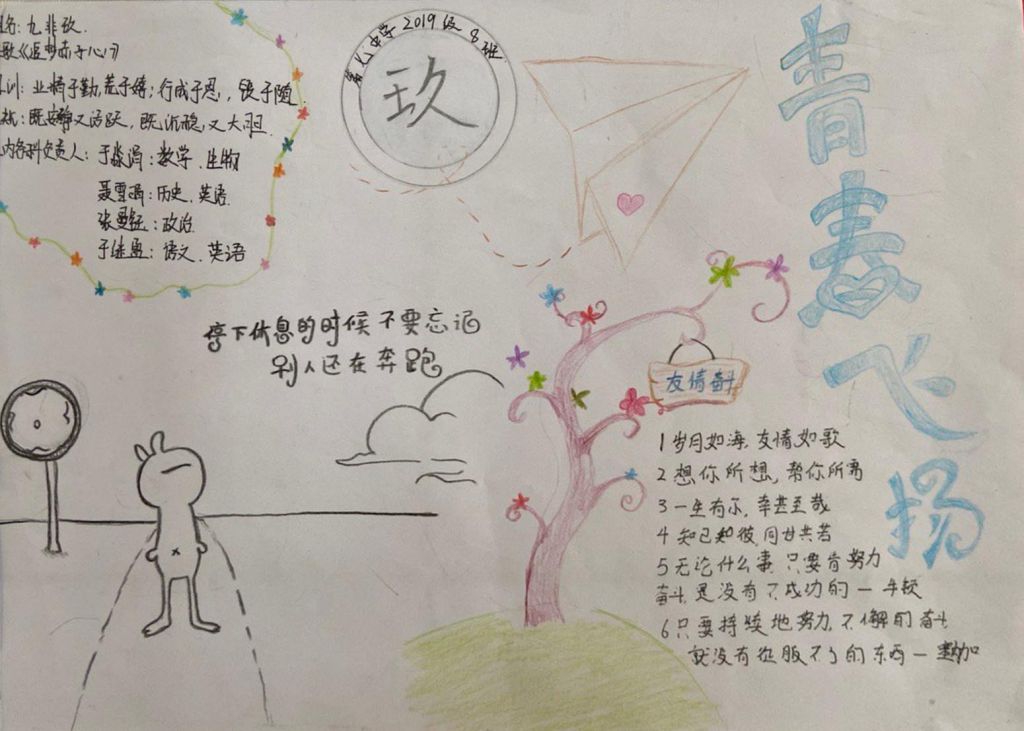 名：九非玖.
歌《追梦赤子心》
训：业精于勤,荒于嬉；行成于思，毁于随.
既安静又活跃，既沉稳,又大胆.
内各科负责人：于淼涓：数学、生物
聂雪涵：历史、英语.
张曼钰：政治
语文、英语
中学2019级8班
玖
停下休息的时候不要忘记
别人还在奔跑
青春飞扬
友情奋斗
1 岁月如海,友情如歌
2 想你所想,帮你所需
3 一生有尔,幸甚至哉
4 知己知彼,同甘共苦
5 无论什么事,只要肯努力
奋斗,是没有不成功的一牛顿
6 只要持续地努力,不懈的奋斗
就没有征服不了的东西一塞内加